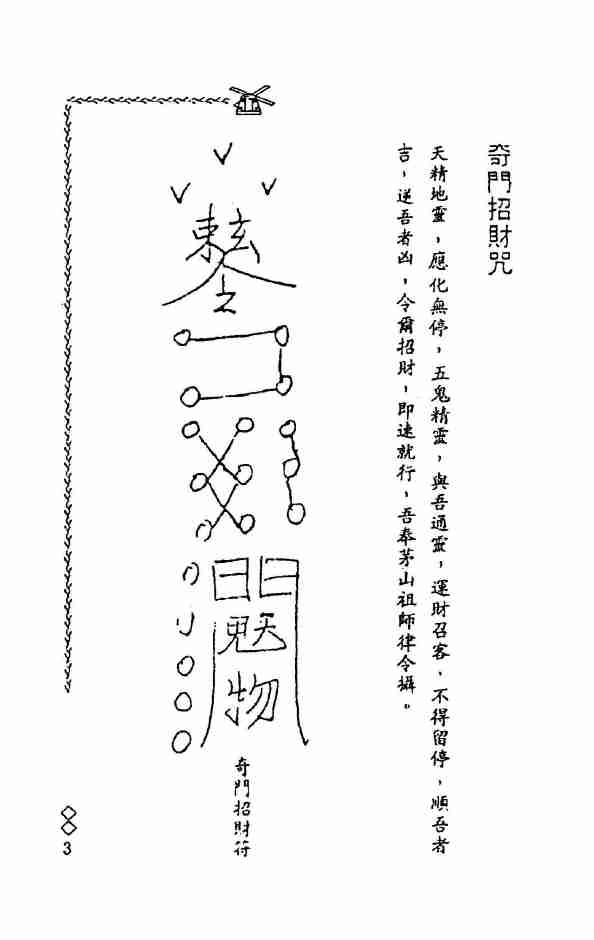 奇門招財咒
天精地靈，應化無停，五鬼精靈，與吾通靈，運財召客、不得留停，順吾者
吉，逆吾者凶，令爾招財，即速就行，吾奉茅山祖師律令攝。
奇門招財符
3